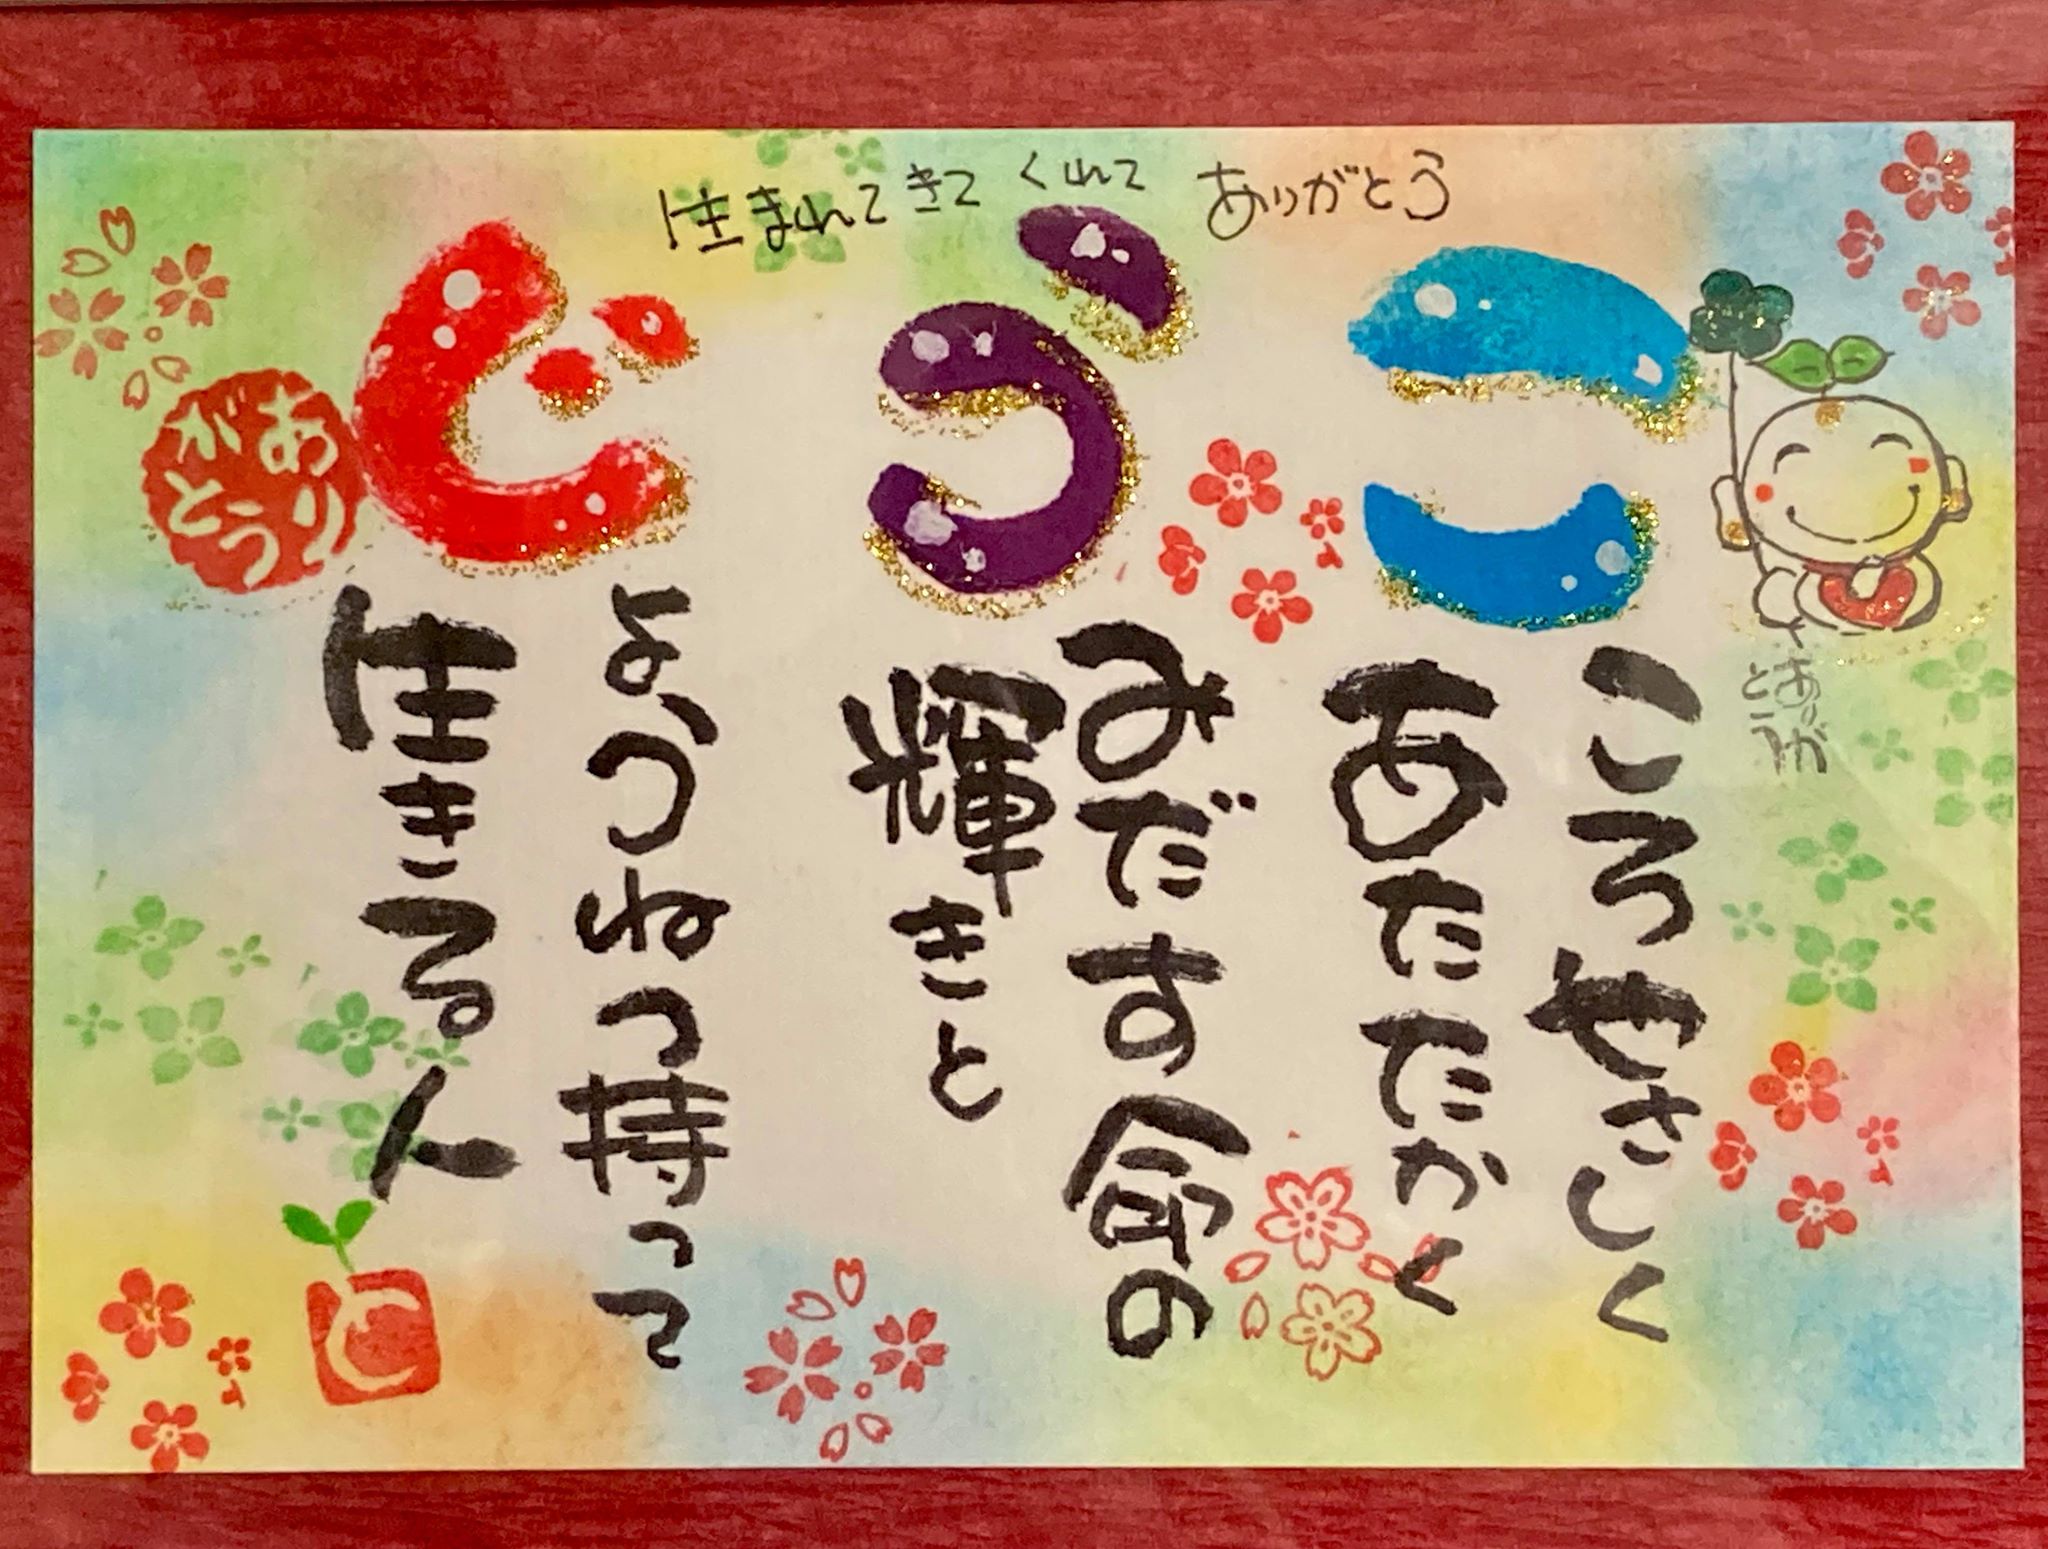 生まれてきてくれてありがとう
こ
ころやさしく
あたたかく
う
みだす命の
輝きと
じ
ょうねつ持って
生きる人
ありがとう
ありがとう